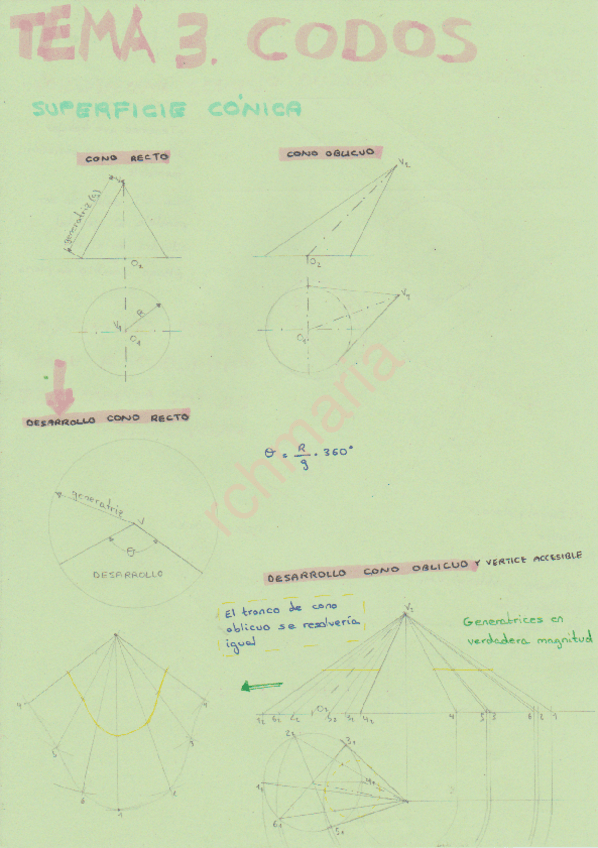 TEMA 3. CODOS
SUPERFICIE CÓNICA
CONO RECTO
CONO OBLICUO
V2
generatriz (g)
O2
O2
V1
R
V1
O1
DESARROLLO CONO RECTO
θ = R/g · 360°
generatriz
V
θ
DESARROLLO
rchmaria
DESARROLLO CONO OBLICUO Y VERTICE ACCESIBLE
El tronco de cono
oblicuo se resolvería
igual
V2
Generatrices en
verdadera magnitud
O2
4 5 3 6 2 1
21
31
61
51
5
6
1